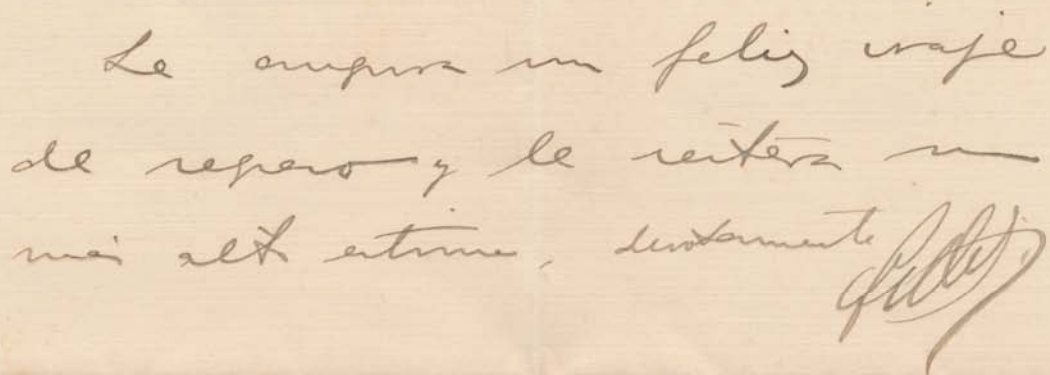 Le augura un feliz viaje
de regreso y le reitera su
más alta estima, devotamente